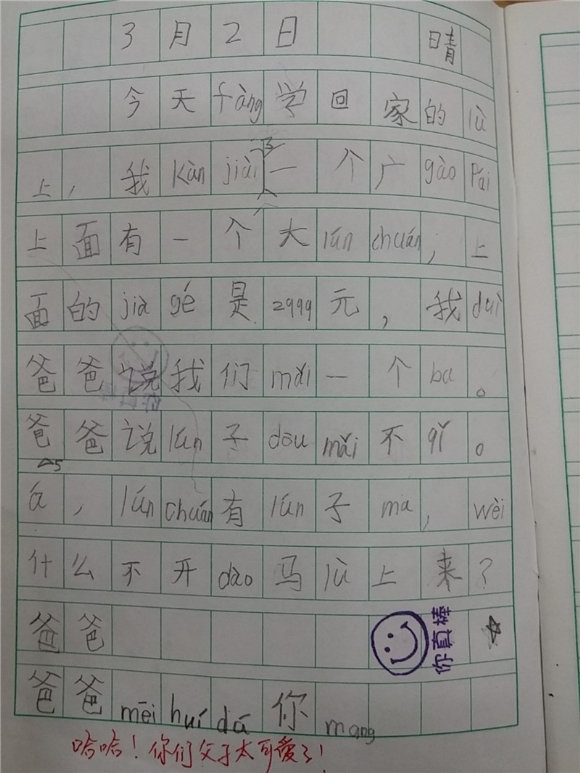 3月2日 晴
今天fàng学回家的lù
上，我kàn jiài了一个广gào Pái
上面有一个大lún chuán，上
面的jià gé是2999元，我duì
爸爸说我们mǎi一个ba。
爸爸说lún子dōu mǎi不qǐ。
á，lún chuán有lún子ma，wèi
什么不开dào马lù上来？
爸爸
你真棒
爸爸méi huí dá你mang
哈哈！你们父子太可爱了！